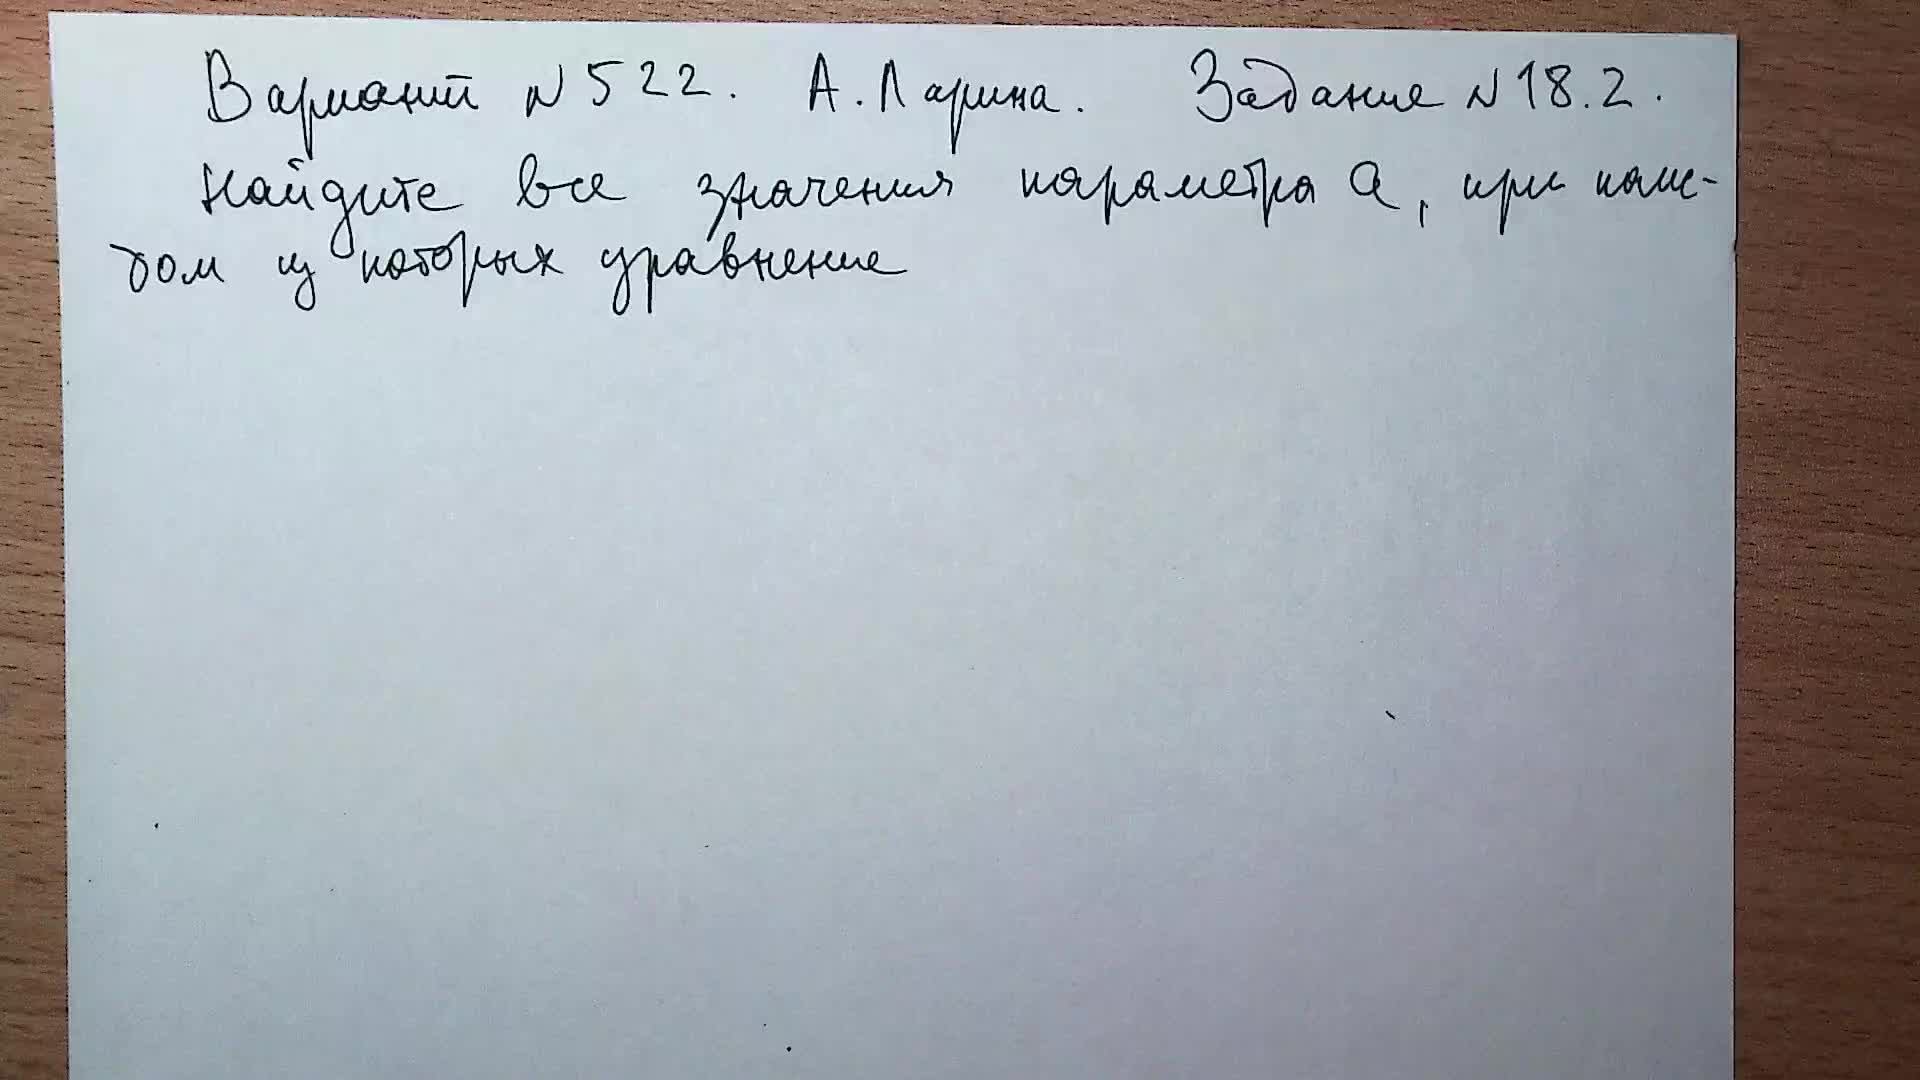 Вариант N 522. А. Ларина. Задание N 18.2.
Найдите все значения параметра а, при каж-
дом из которых уравнение